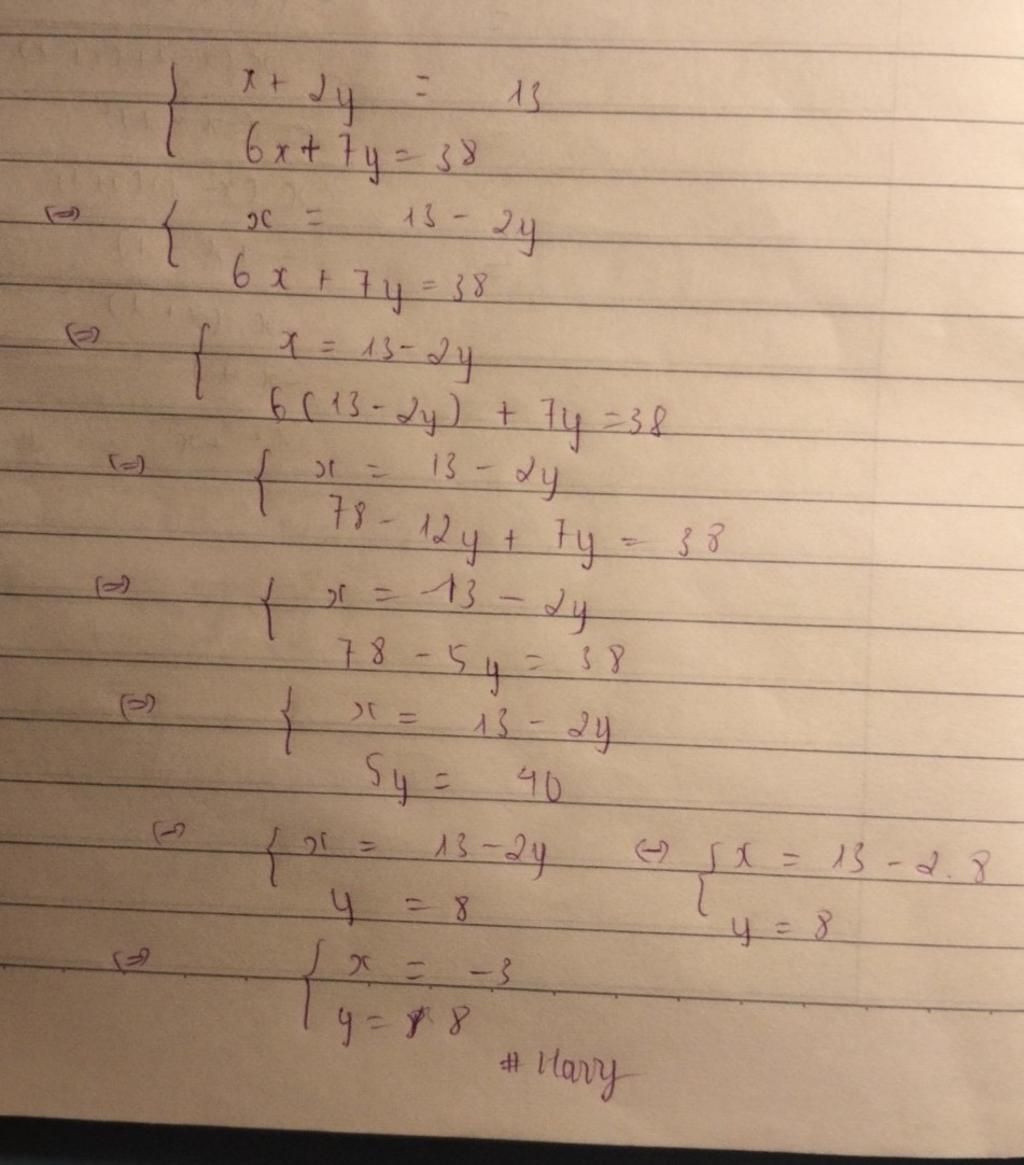 { x + 2y = 13
6x + 7y = 38
⇔ { x = 13 - 2y
6x + 7y = 38
⇔ { x = 13 - 2y
6(13 - 2y) + 7y = 38
⇔ { x = 13 - 2y
78 - 12y + 7y = 38
⇔ { x = 13 - 2y
78 - 5y = 38
⇔ { x = 13 - 2y
5y = 40
⇔ { x = 13 - 2y ⇔ { x = 13 - 2.8
y = 8 y = 8
⇔ { x = -3
y = 8
#